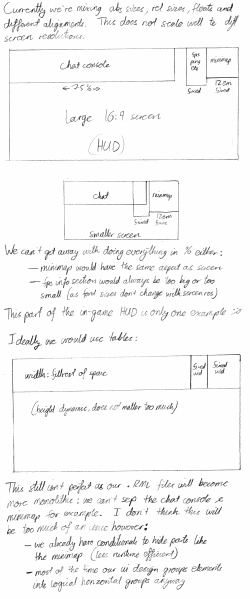 Currently we're mixing abs sizes, rel sizes, floats and
different alignments. This does not scale well to diff
screen resolutions:
Chat console
fps
ping
etc
minimap
← 75% →
fixed
128m
fixed
Large 16:9 screen
(HUD)
chat
fixed
128m
fixed
smaller screen
We can't get away with doing everything in % either:
– minimap would have the same aspect as screen
– fps info section would always be too big or too
small (as font sizes don't change with screen res)
This part of the in-game HUD is only one example
Ideally we would use tables:
width: fill rest of space
fixed
wid
fixed
wid
(height dynamic, does not matter too much)
This still isn't perfect as our .RML files will become
more monolithic: we can't sep the chat console &
minimap for example. I don't think this will
be too much of an issue however:
– we already have conditionals to hide parts like
the minimap (less runtime efficient)
– most of the time our ui design groups elements
into logical horizontal groups anyway